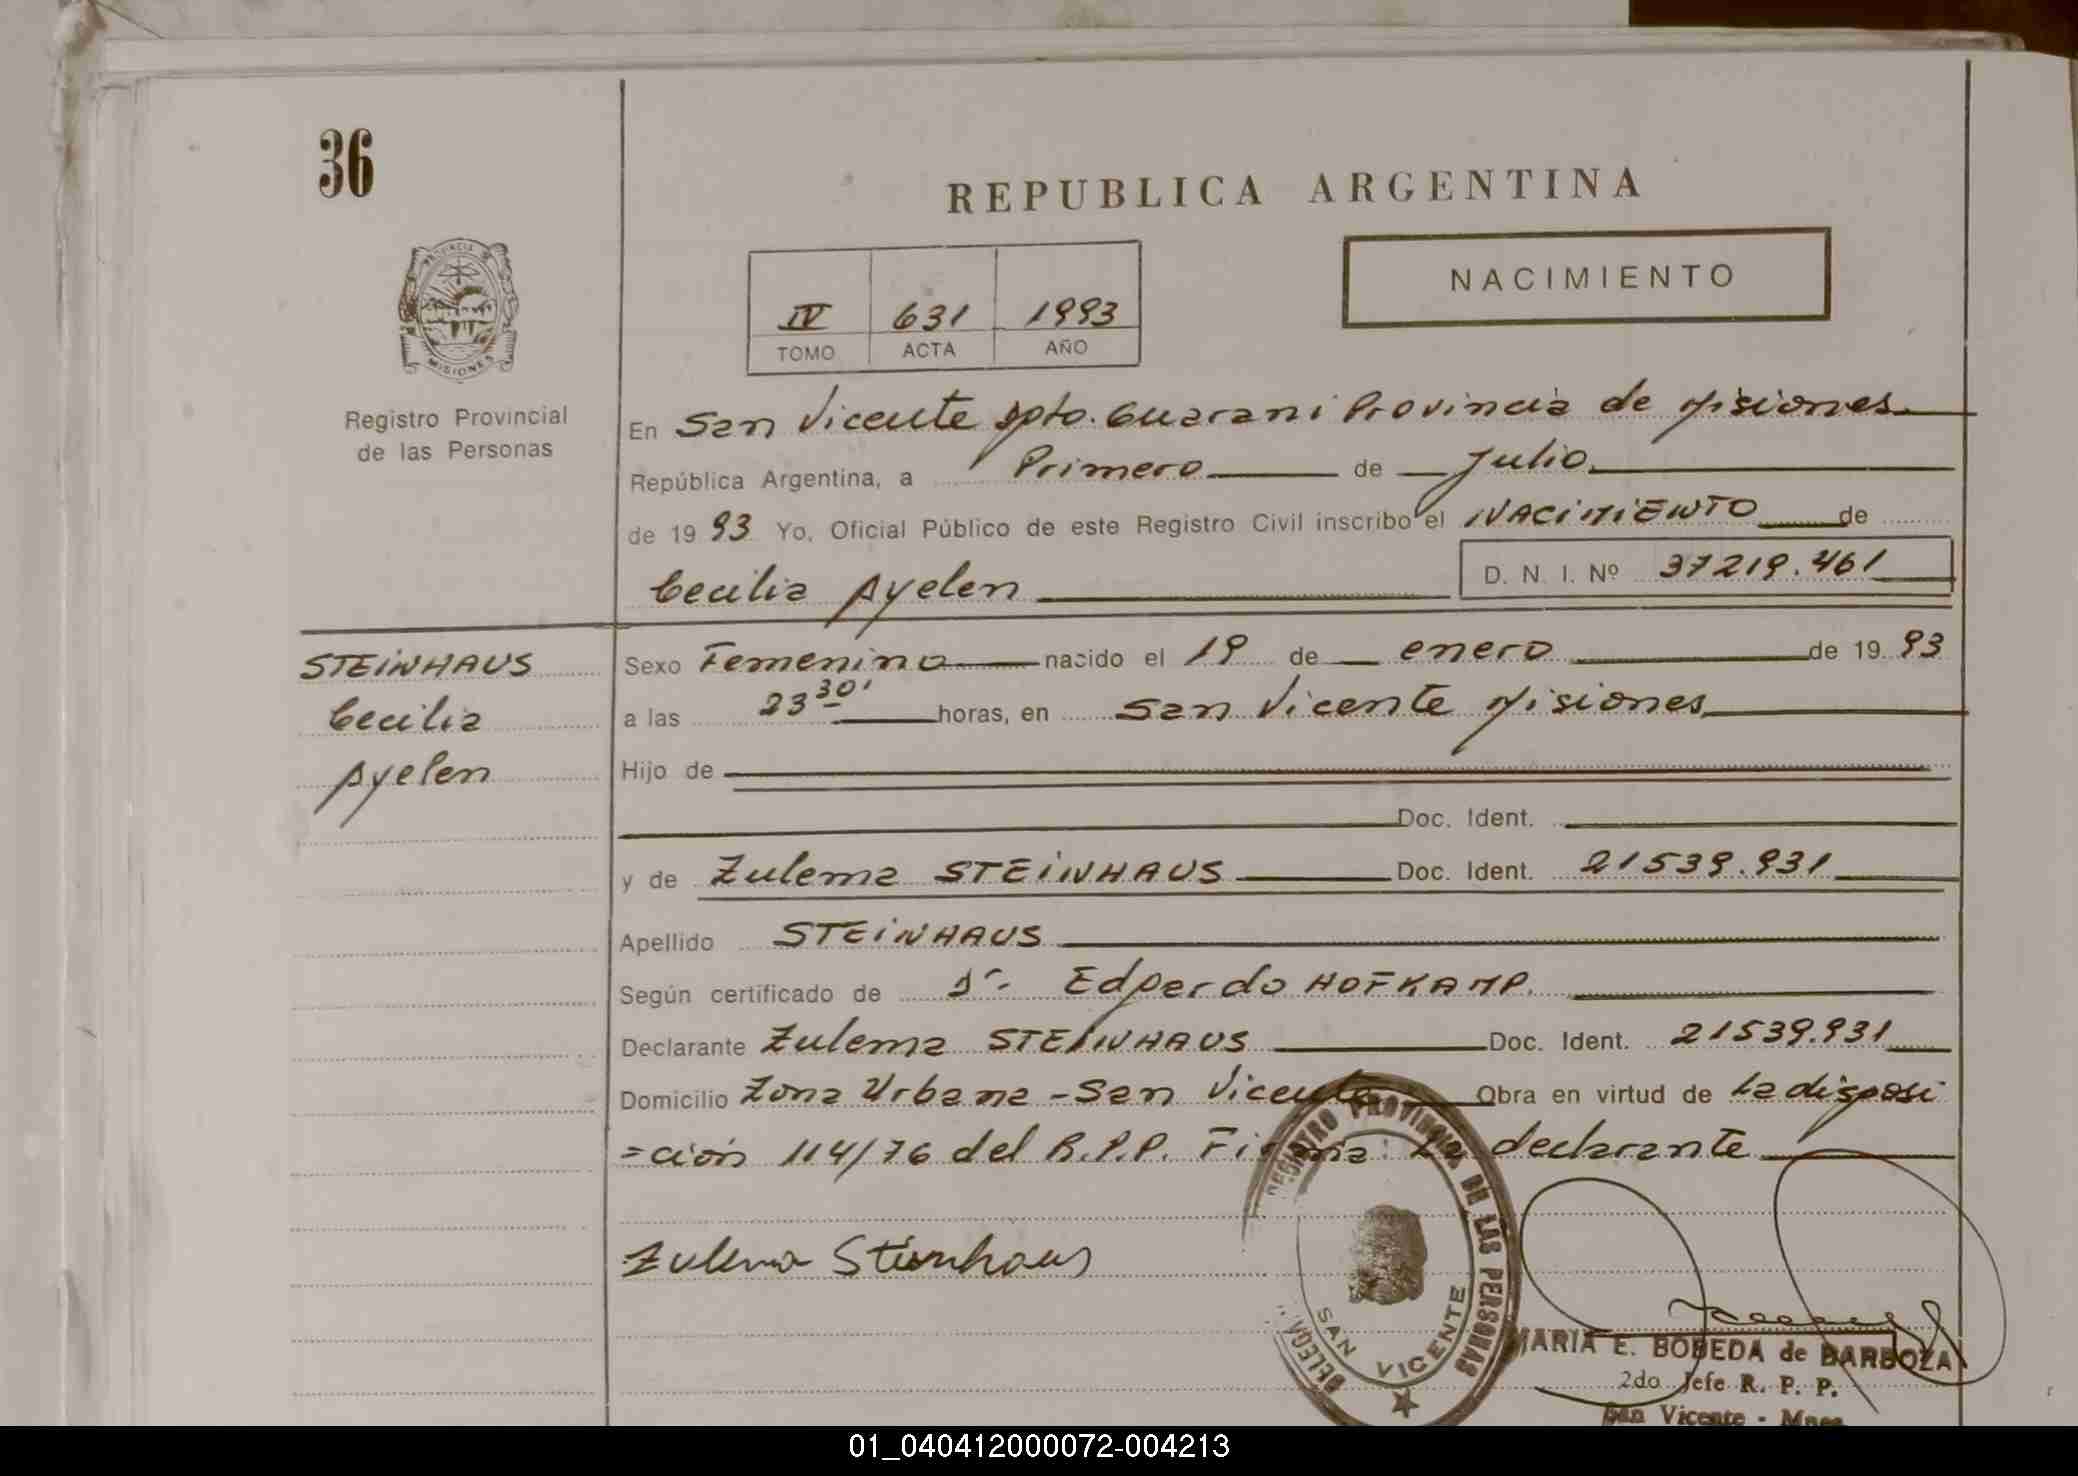 36
REPUBLICA ARGENTINA
NACIMIENTO
IV 631 1993
TOMO ACTA AÑO
PROVINCIA
MISIONES
Registro Provincial
de las Personas
En San Vicente Dpto. Guarani Provincia de Misiones
República Argentina, a Primero de Julio
de 1993 Yo, Oficial Público de este Registro Civil inscribo el NACIMIENTO de
Cecilia Ayelen D. N. I. Nº 37219.461
STEINHAUS
Cecilia
Ayelen
Sexo Femenino nacido el 19 de enero de 1993
a las 23 30' horas, en San Vicente Misiones
Hijo de
Doc. Ident.
y de Zulema STEINHAUS Doc. Ident. 21539.931
Apellido STEINHAUS
Según certificado de Dr. Edgardo HOFKAMP.
Declarante Zulema STEINHAUS Doc. Ident. 21539.931
Domicilio Zona Urbana - San Vicente Obra en virtud de La disposi
=ción 114/76 del R.P.P. Firma: La declarante
Zulema Steinhaus
REGISTRO PROVINCIAL DE LAS PERSONAS
DELEGA
SAN VICENTE
MARIA E. BOBEDA de BARBOZA
2do Jefe R. P. P.
San Vicente - Mnes
01_040412000072-004213